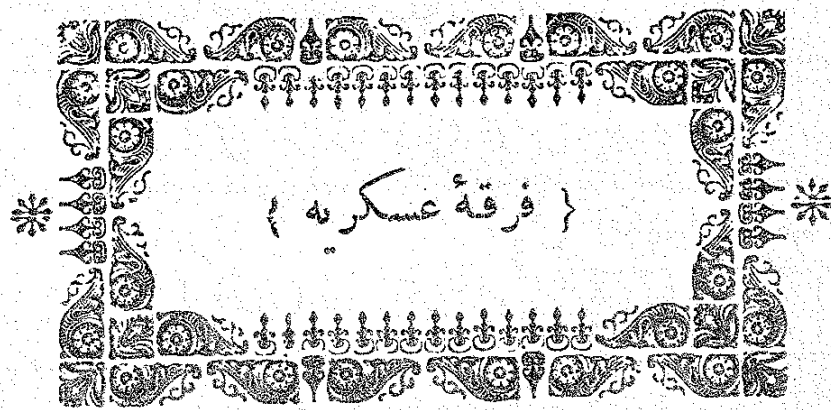 { فرقۀ عسكريه }